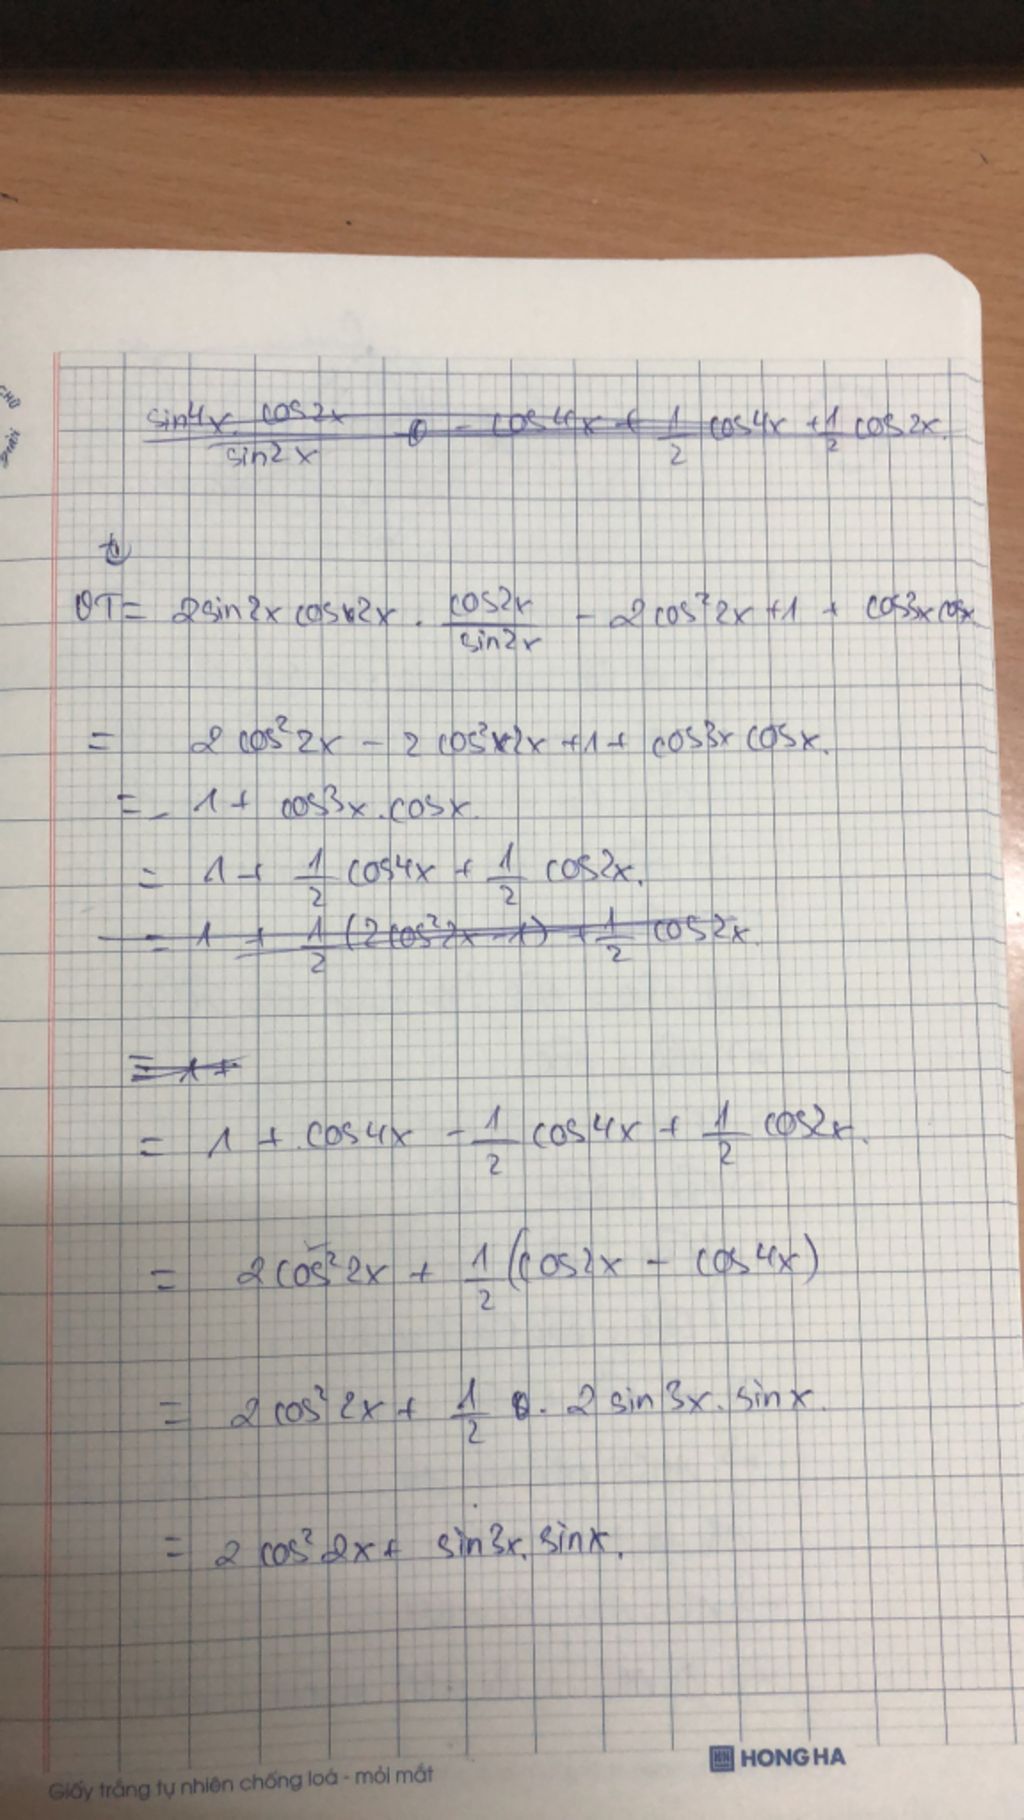 sin4x cos2x / sin2x - cos4x + 1/2 cos4x + 1/2 cos2x.
VT = 2sin2x cos2x . cos2x / sin2x - 2cos²2x + 1 + cos3x cosx
= 2cos²2x - 2cos²2x + 1 + cos3x cosx.
= 1 + cos3x . cosx.
= 1 + 1/2 cos4x + 1/2 cos2x.
= 1 + 1/2 (2cos²2x - 1) + 1/2 cos2x.
= 1 +
= 1 + cos4x - 1/2 cos4x + 1/2 cos2x.
= 2cos²2x + 1/2 (cos2x - cos4x)
= 2cos²2x + 1/2 . 2sin3x . sinx.
= 2cos²2x + sin3x . sinx.
HONG HA
Giấy trắng tự nhiên chống loá - mỏi mắt